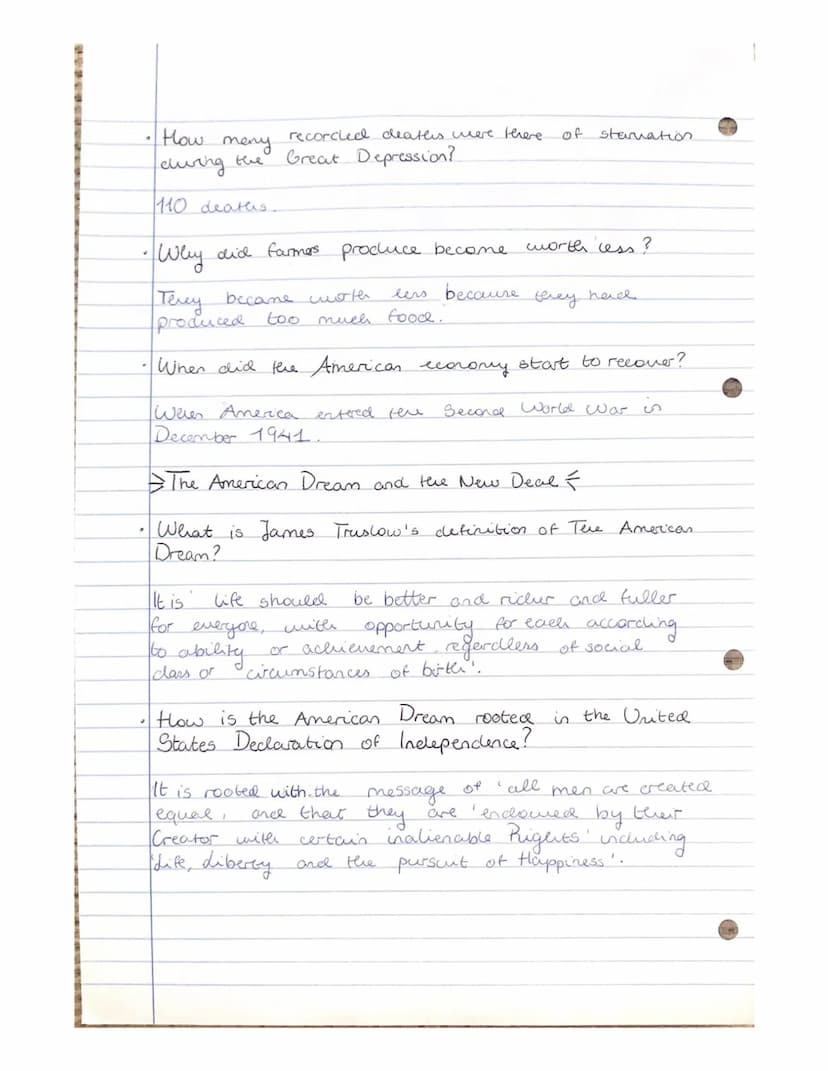 · How many recorded deaths were there of starvation
during the Great Depression?
110 deaths.
· Why did farmers produce become worth less?
They became worth less because they had
produced too much food.
· When did the American economy start to recover?
When America entred the Second World War in
December 1941.
→ The American Dream and the New Deal ←
· What is James Truslow's definition of The American
Dream?
It is 'life should be better and richer and fuller
for everyone, with opportunity for each according
to ability or achievement, regerdless of social
class or circumstances of birth'.
· How is the American Dream rooted in the United
States Declaration of Independence?
It is rooted with the message of 'all men are created
equal, and that they are 'endowed by their
Creator with certain inalienable Rights' including
'Life, Liberty and the pursuit of Happiness'.